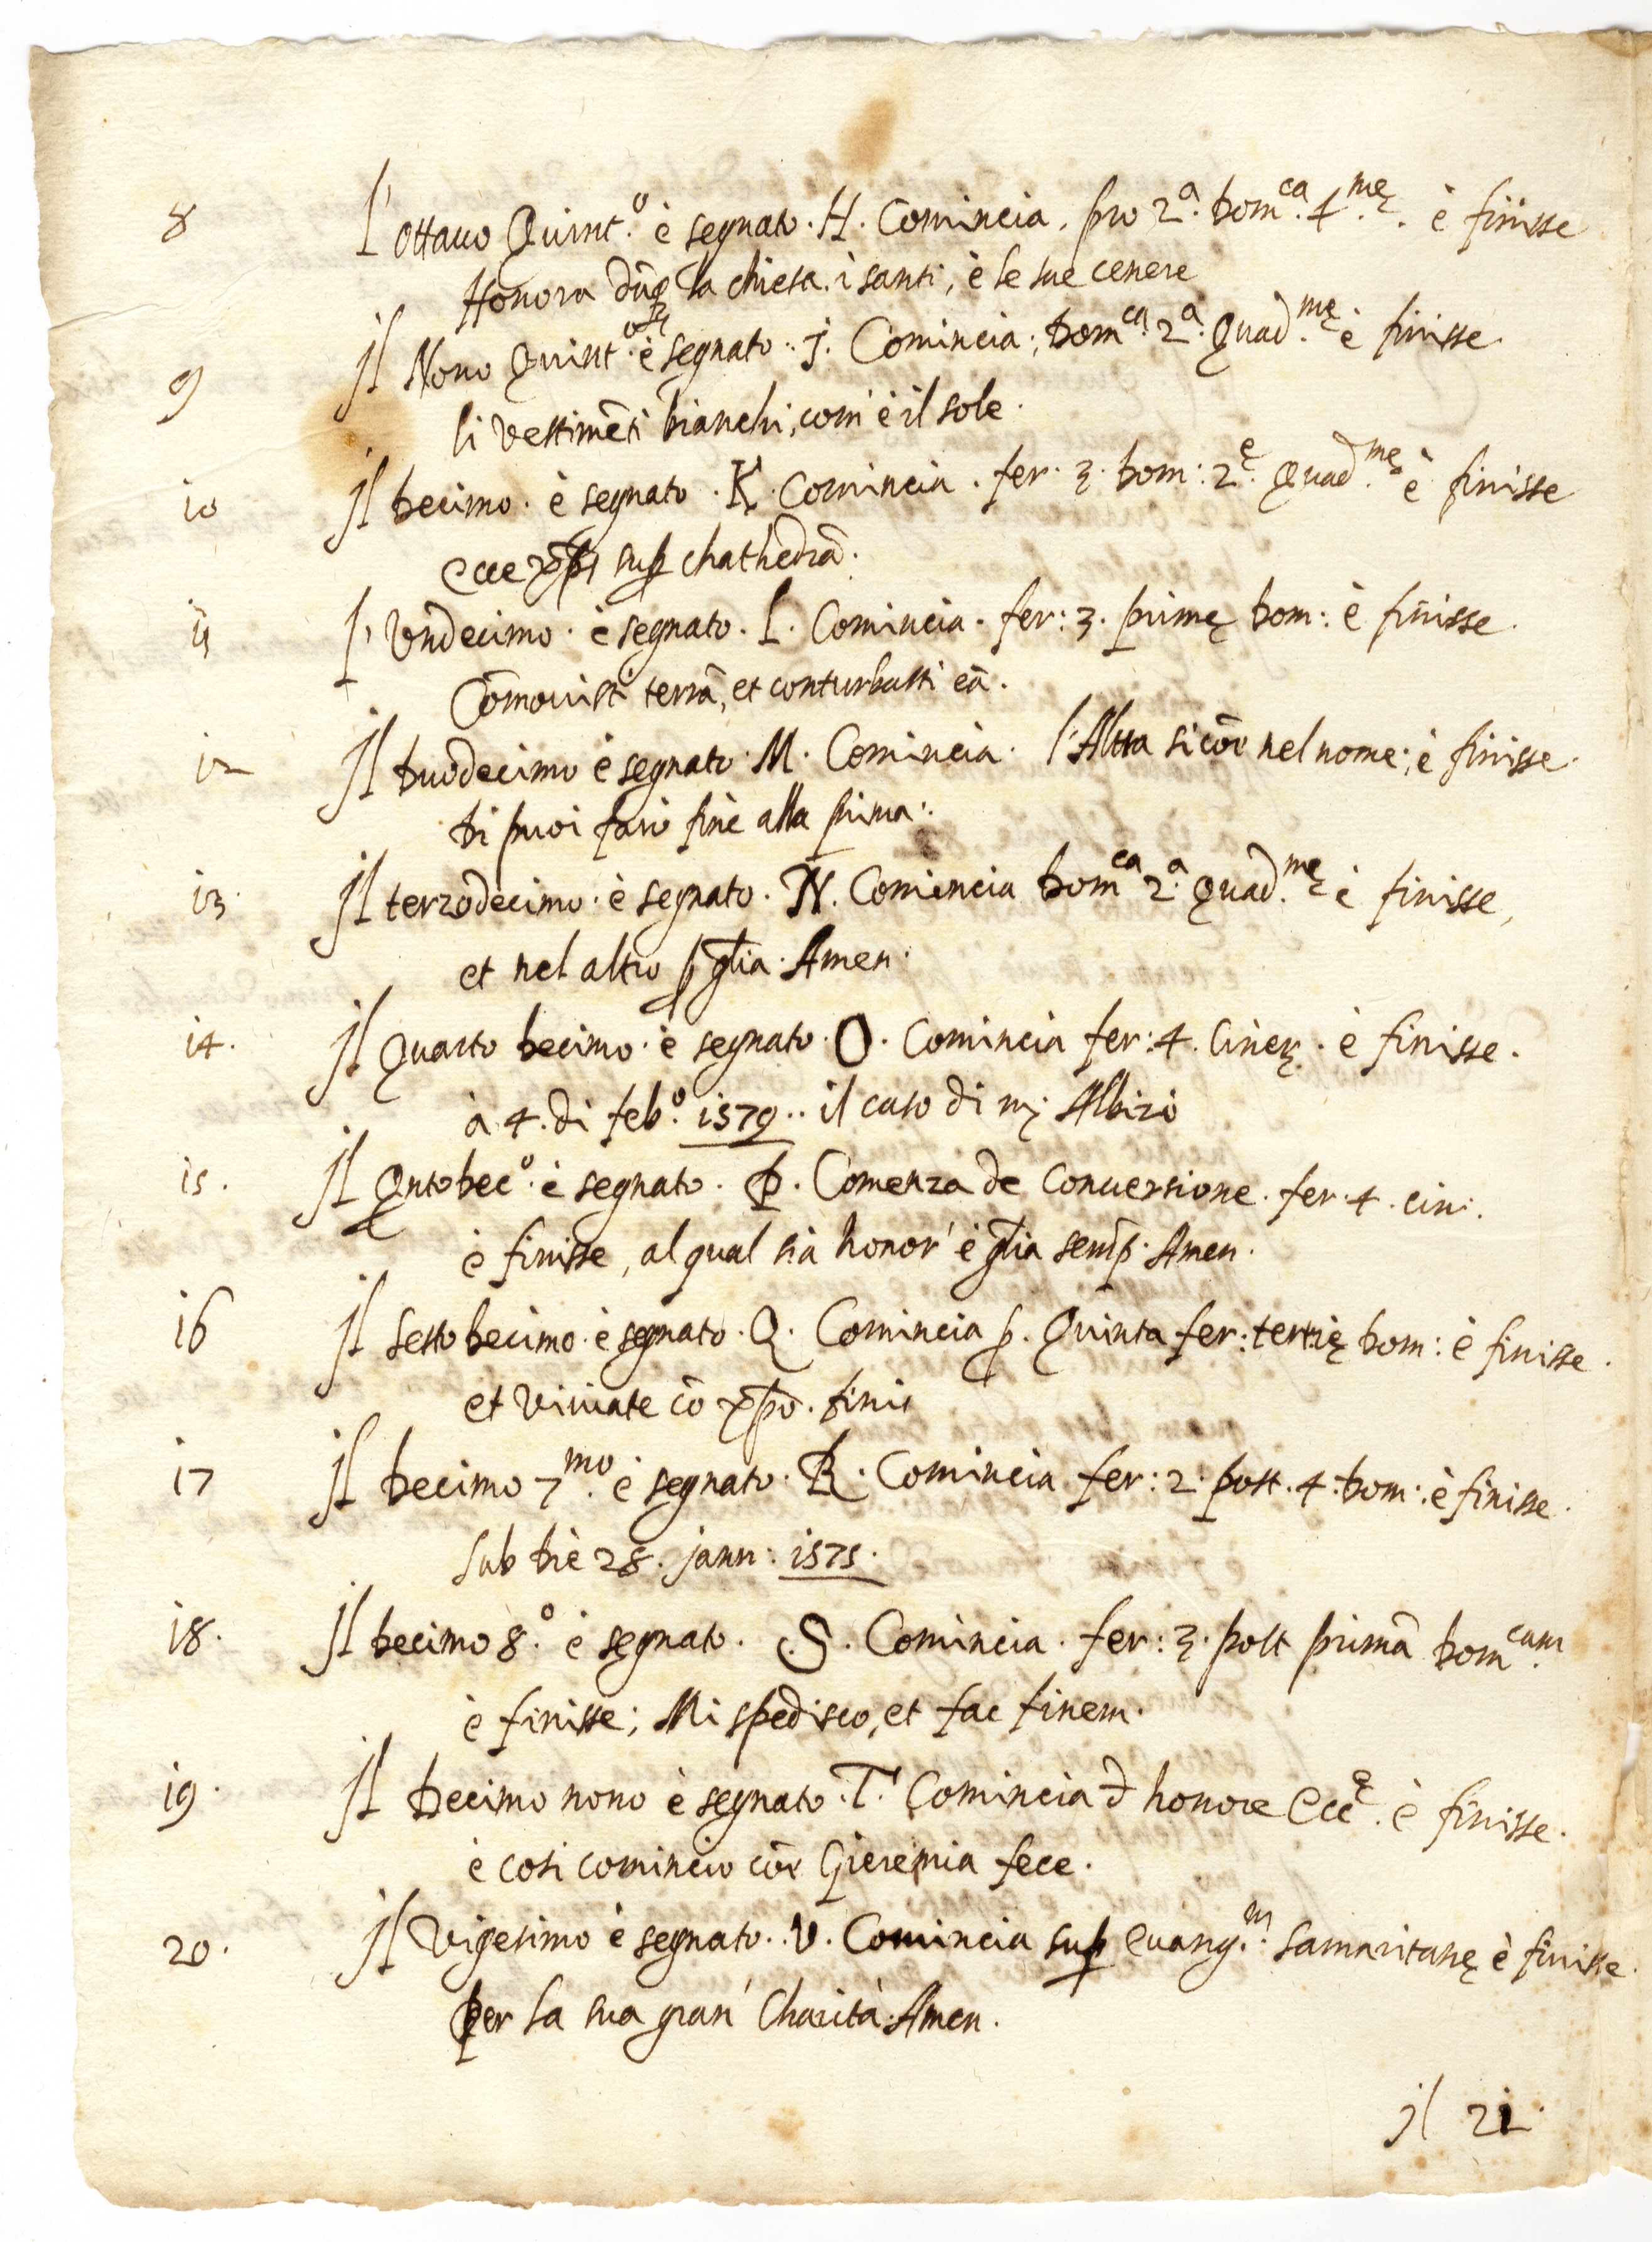 8 L' ottauo Quint.º è segnato. H. Comincia. pro 2.ª dom.ca 4.mę. è finisse
Honora dūq la chiesa. i santi, è le sue cenere
9 jl Nono Quint.º è segnato. j. Comincia; dom.ca 2.ª Quad.mę è finisse
li vestimēti bianchi, com' è il sole.
10 jl decimo. è segnato. K. Comincia. fer. 3. dom: 2.ę Quad.mę è finisse
ecce xp̄s sup chathedrā.
11 L' vndecimo. è segnato. L. Comincia. fer: 3. primę dom: è finisse.
Cōmouisti terrā, et conturbasti eā.
12 jl duodecimo è segnato. M. Comincia. l'Altra si cōe nel nome; è finisse.
di puoi farò fine alla prima:.
13. jl terzodecimo. è segnato. N. Comincia dom.ca 2.ª Quad.mę è finisse,
et nel altro p gl̄ia. Amen.
14. jl Quarto decimo. è segnato. O. Comincia fer: 4. Cinerę. è finisse.
à 4. di feb.º 1579.. il caso di mj Albizò
15. jl Qntodec.º è segnato. P. Comenza de conuersione. fer. 4. cin:.
è finisse, al qual sià honor' è gl̄ia semp̄. Amen.
16 jl sesto decimo. è segnato. Q. Comincia p. Quinta fer: tertię dom: è finisse.
et viuate cō xpō. finis
17 jl decimo 7.mo è segnato. R. Comincia fer: 2. post. 4. dom: è finisse.
sub diè 28. jann: 1575.
18. jl decimo 8.º è segnato. S. Comincia. fer: 3. post primā dom.cam
è finisse; Mi spedisco, et fac finem.
19. jl decimo nono è segnato. T. Comincia đ honore Ecc.ę è finisse.
è cosi comincio cōe Gieremia fece.
20. jl vigesimo è segnato. V. Comincia sup euang.m samaritanę è finisse.
per la sua gran' Charità. Amen.
jl 21.